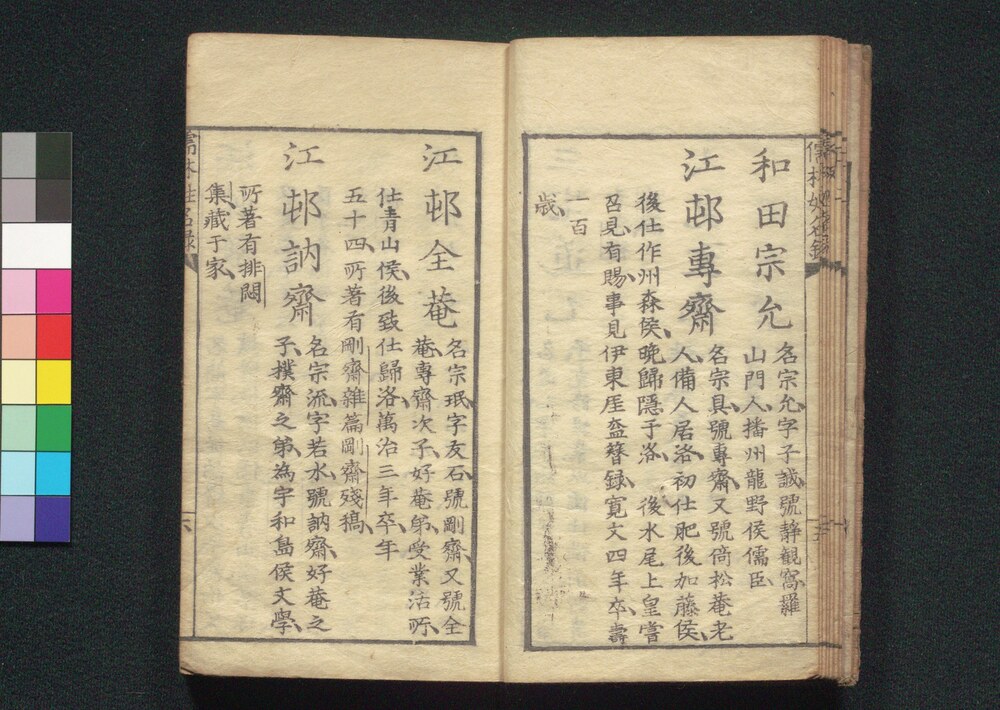 和田宗允 名宗允字子誠號静観窩羅
山門人播州龍野侯儒臣
江邨專齋 名宗具號專齋又號倚松菴老
人備人居洛初仕肥後加藤侯
後仕作州森侯晚歸隱于洛後水尾上皇嘗
召見有賜事見伊東座盍簪録寬文四年卒壽
一百
歲
江邨全菴 名宗珉字友石號剛齋又號全
菴專齋次子好菴弟受業活所
仕青山侯後致仕歸洛萬治三年卒年
五十四所著有剛齋雜篇剛齋殘稿
江邨訥齋 名宗流字若水號訥齋好菴之
子撲齋之弟為宇和島侯文學
所著有排悶
集藏于家
儒林姓名録